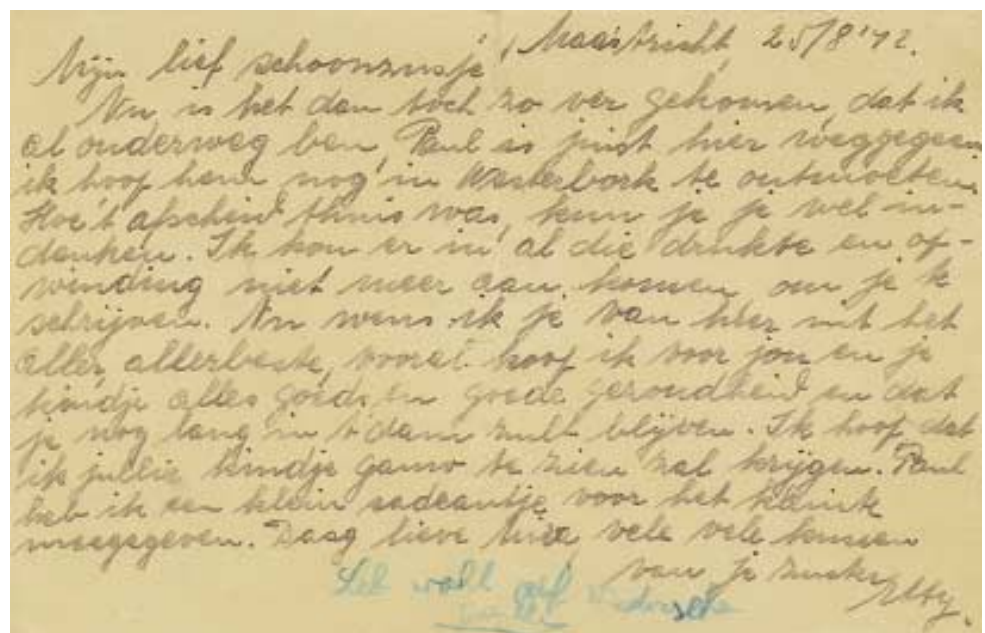 Maastricht, 25/8'42.
Mijn lief schoonzusje,
Nu is het dan toch zo ver gekomen, dat ik
al onderweg ben, Paul is juist hier weggegaan
ik hoop hem nog in Westerbork te ontmoeten.
Hoe't afscheid thuis was, kun je je wel in-
denken. Ik kon er in al die drukte en op-
winding niet meer aan komen om je te
schrijven. Nu wens ik je van hier uit het
aller, allerbeste, vooral hoop ik voor jou en je
kindje alles goeds en goede gezondheid en dat
je nog lang in A'dam zult blijven. Ik hoop, dat
ik jullie kindje gauw te zien zal krijgen. Paul
heb ik een klein cadeautje voor het kleintje
meegegeven. Daag lieve vele vele kussen
van je zuster Etty.